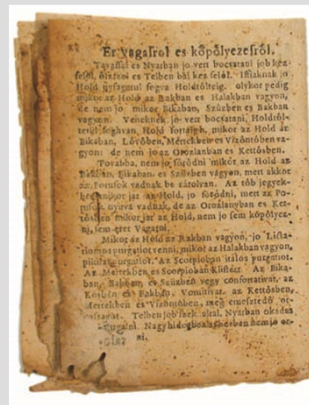 Er vagasrol es kőpőlyezesről.
Tavassal es Nyarban jo vert bocsatani job kéz
felől, őszszel es Telben bal kéz felől. Iffiaknak jo
Hold ujsagatul fogva Holdtőlteig. olykor pedig
mikor az Hold az Bakban es Halakban vagyon,
de nem jo mikor Bikaban, Szűzben es Bakban
vagyon. Veneknek jo vert bocsatni, Holdtől-
teről foghvan, Hold fortaigh, mikor az Hold az
Bikaban, Lővőben, Mertekben es Vizöntőben va-
gyon: de nem jo az Oroszlanban es Kettősben.
Tovabba, nem jo főrődni mikor az Hold az
Bakban, Bikaban, es Szűzben vagyon, mert akkor
az Porusok vadnak be zárolvan. Az tőb jegyek-
ben mikor jar az Hold, jo főrődni, mert az Po-
rusok nyitva vadnak, de az Oroszlanyban es Ket-
tősben mikor jar az Hold, nem jo sem kőpőlyez-
ni, sem eret Vagatni.
Mikor az Hold az Rakban vagyon, jo Lista-
riomos purgatiot venni, mikor az Halakban vagyon,
pilulas purgatiot. Az Scorpioban italos purgatiot.
Az Mertekben es Scorpioban Klistert. Az Bika-
ban, Bakban, es Szűzben vegy confortativat, az
Kosban es Bakban, Vomitivat, az Kettősben,
Mertekben es Vizöntőben, meg emesztető or-
vossagot. Telben job ital, Nyarban okadas
purgalni. Nagy hidegben hevsegben nem jo or-
ni.